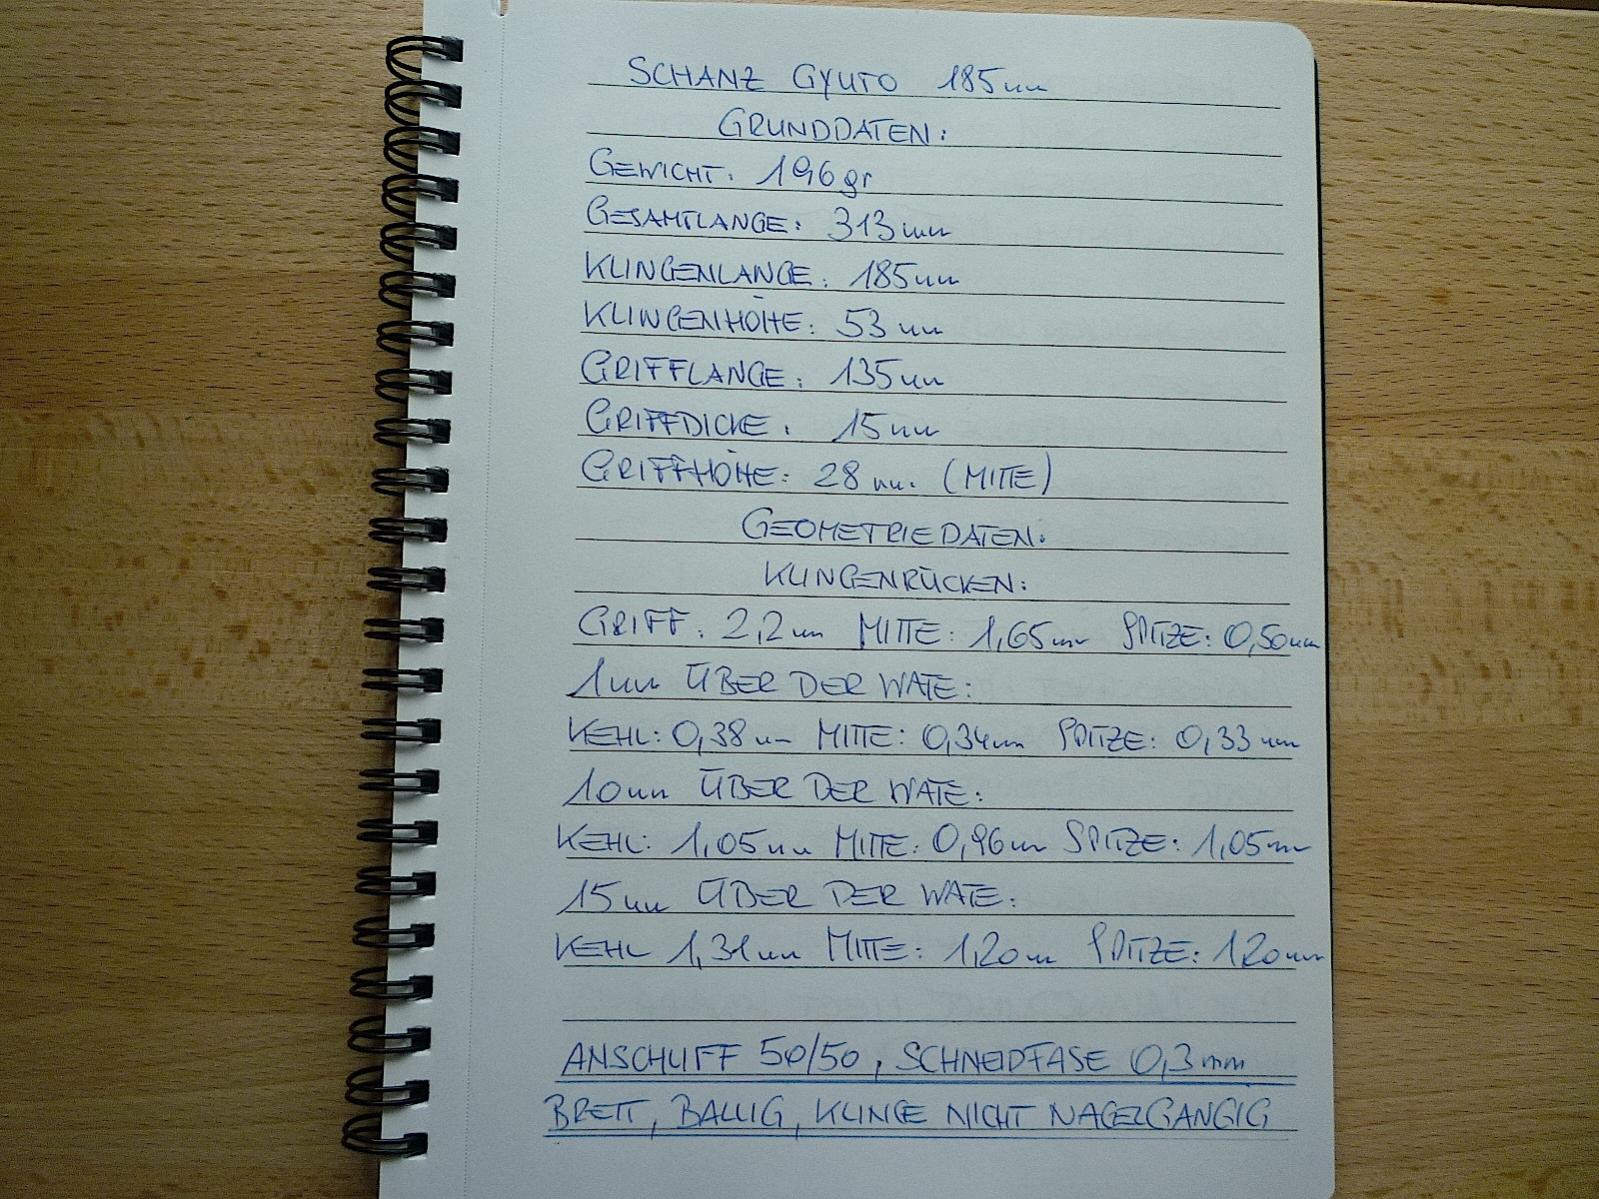 SCHANZ GYUTO 185mm
GRUNDDATEN:
GEWICHT: 196gr
GESAMTLANGE: 313mm
KLINGENLANGE: 185mm
KLINGENHÖHE: 53mm
GRIFFLANGE: 135mm
GRIFFDICKE: 15mm
GRIFFHÖHE: 28mm. (MITTE)
GEOMETRIEDATEN:
KLINGENRÜCKEN:
GRIFF: 2,2mm MITTE: 1,65mm SPITZE: 0,50mm
1mm ÜBER DER WATE:
KEHL: 0,38mm MITTE: 0,34mm SPITZE: 0,33mm
10mm ÜBER DER WATE:
KEHL: 1,05mm MITTE: 0,96mm SPITZE: 1,05mm
15mm ÜBER DER WATE:
KEHL 1,31mm MITTE: 1,20mm SPITZE: 1,20mm
ANSCHLIFF 50/50, SCHNEIDFASE 0,3mm
BREIT, BALLIG, KLINGE NICHT NAGELGANGIG